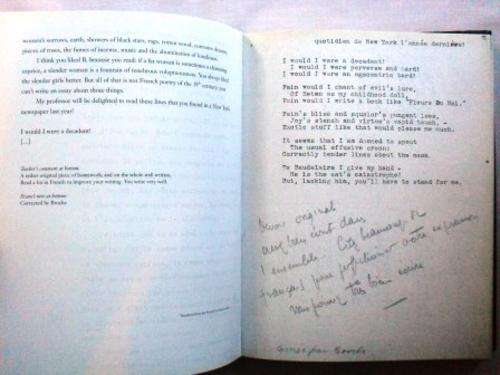 women's sorrows, earth, showers of black stars, rags, rotten wood, corrosive dreams,
pieces of trees, the fumes of incense, music and the absorption of
I think you liked B. because you read: if a fat woman is sometimes a charming
caprice, a slender woman is a fountain of tenebrous voluptuousness. You always liked
the slender girls better. But all of that is not French poetry of the 19th century you
can't write an essay about those things.
My professor will be delighted to read these lines that you found in a New York
newspaper last year!
I would I were a decadent!
[...]
Teacher's comment at bottom:
A rather original piece of homework, and on the whole and written.
Read a lot in French to improve your writing. You write very well.
Corrected by Brooks
quotidien de New York l'année dernière!
I would I were a decadent!
I would I were perverse and hard!
I would I were an egocentric bard!
Fain would I chant of evil's lure,
Of Satan as my childhood doll,
Fain would I write a book like "Fleurs Du Mal."
Pain's bliss and squalor's pungent lees,
Joy's stench and virtue's vapid touch -
Exotic stuff like that would please me much.
It seems that I am doomed to spout
The usual effusive croon:
Currently tender lines about the moon.
To Baudelaire I give my hand -
He is the cat's catastrophe!
But, lacking him, you'll have to stand for me.
Devoir original
l'ensemble
Français pour perfectionner votre expression
bien écrire